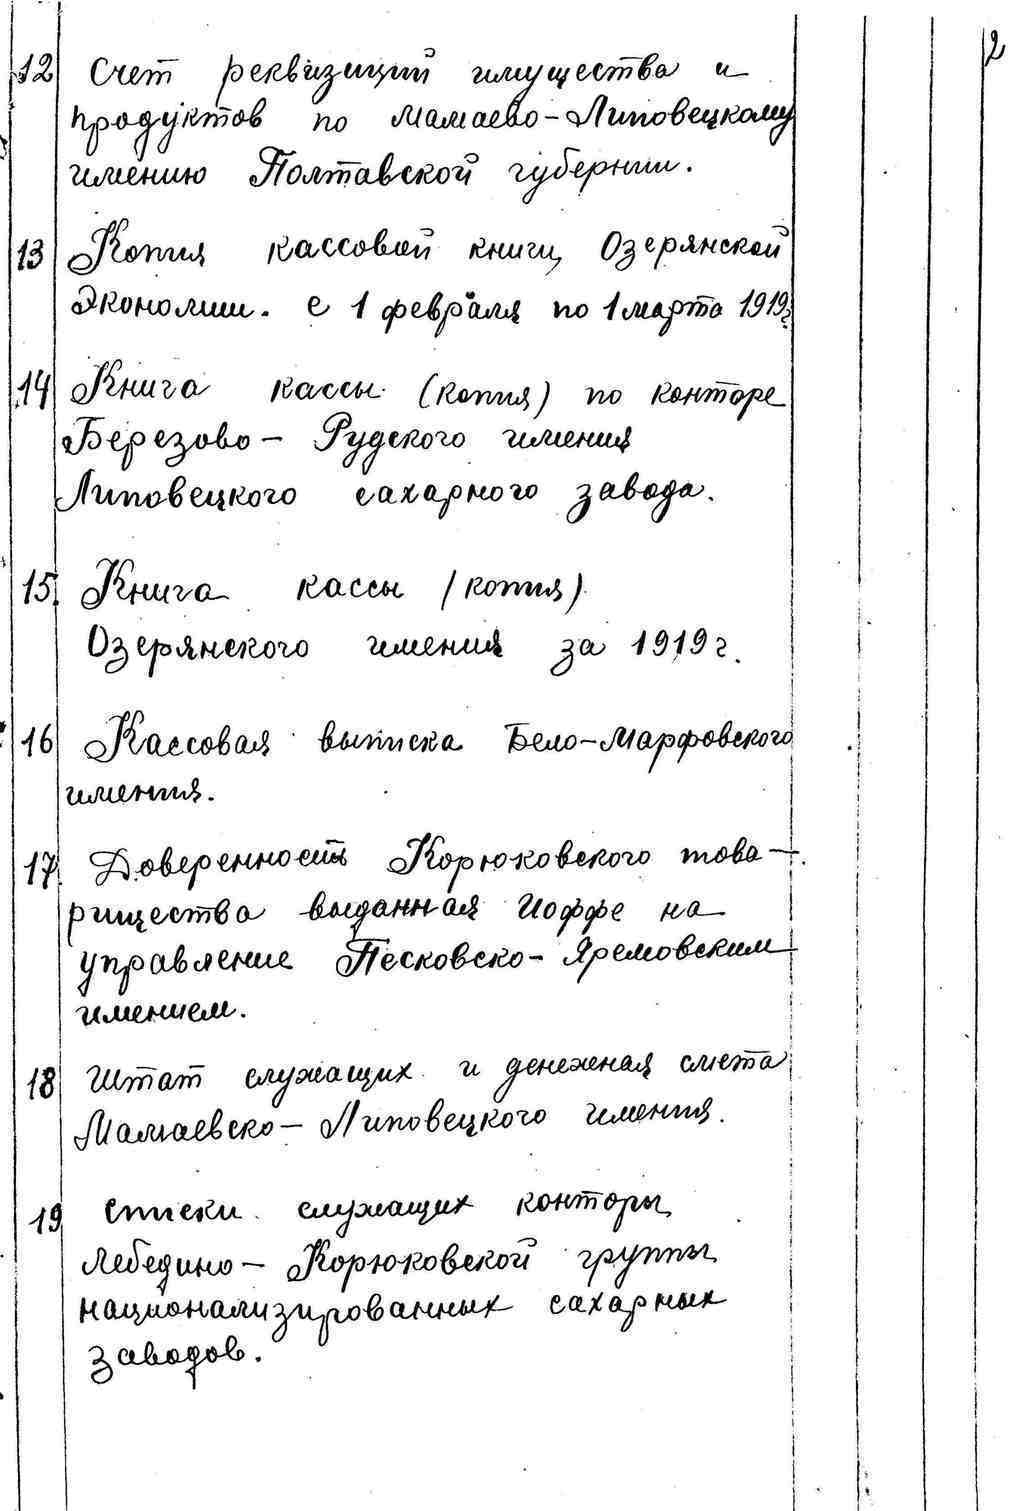 2
12 Счет реквизиций имущества и
продуктов по Мамаево-Липовецкому
имению Полтавской губернии.
13 Копия кассовой книги Озерянской
Экономии. с 1 февраля по 1 марта 1919г.
14 Книга кассы (копия) по конторе
Березово-Рудского имения
Липовецкого сахарного завода.
15. Книга кассы (копия)
Озерянского имения за 1919 г.
16 Кассовая выписка Бело-Марфовского
имения.
17. Доверенность Корюковского това-
рищества выданная Иоффе на
управление Песковско-Яремовским
имением.
18 Штат служащих и денежная смета
Мамаевско-Липовецкого имения.
19 Списки служащих конторы
Лебедино-Корюковской группы
национализированных сахарных
заводов.